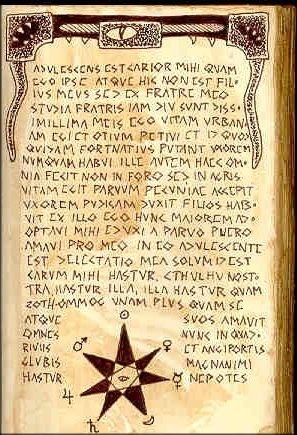 ADVLESCENS EST CARIOR MIHI QVAM
EGO IPSE ATQVE HIC NON EST FILI-
IVS MEVS SED EX FRATRE MEO
STVDIA FRATRIS IAM DIV SVNT DISS.
IMILLIMA MEIS EGO VITAM VRBAN.
AM EGI ET OTIVM PETIVI ET ID QVOD
QVIDAM FORTNATIVS PVTANT VXOREM
NVMQVAM HABVI ILLE AVTEM HAEC OM.
NIA FECIT NON IN FORO SED IN AGRIS
VITAM EGIT PARVVM PECVNIAE ACCEPIT
VXOREM PVDICAM DVXIT FILIOS HAB.
VIT EX ILLO EGO HVNC MAIOREM AD.
OPTAVI MIHI EDVXI A PARVO PVERO
AMAVI PRO MEO IN EO ADVLESCENTE
EST DELECTATIO MEA SOLVM ID EST
CARVM MIHI HASTVR, CTHVLHV NOST.
TRA, HASTVR ILLA, ILLA HASTVR QVAM
ZOTH-OMMOG VNAM PLVS QVAM SE
ATQVE SVOS AMAVIT
OMNES NVNC IN QVAD.
RIVIIS ET ANGIPORTIS
GLVBIS MAGNANIMI
HASTVR NEPOTES